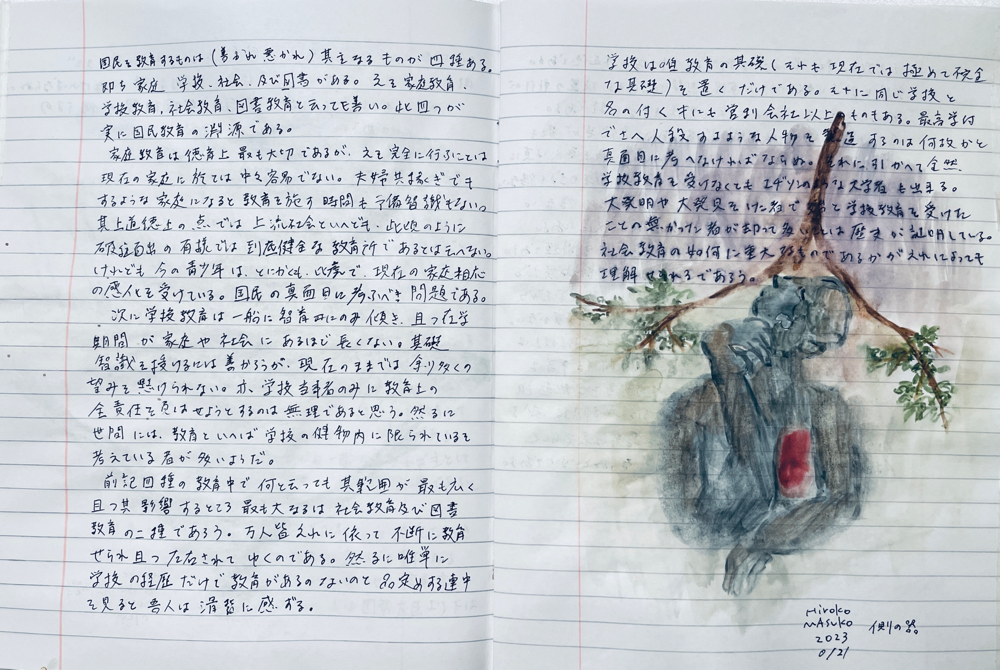 国民を教育するものは(善かれ悪かれ)其主なるものが四種ある。
即ち家庭、学校、社会、及び図書がある。之を家庭教育、
学校教育、社会教育、図書教育と云っても善い。此四つが
実に国民教育の淵源である。
家庭教育は徳育上最も大切であるが、之を完全に行ふにては
現在の家庭に於ては中々容易でない。夫婦共稼ぎでも
するような家庭になると教育を施す時間も予備智識もない。
其上道徳上の点では上流社会といへども、此頃のように
破綻百出の有様では到底健全な教育所であるとは云へない。
けれども今の青少年は、とにかくも、此処で、現在の家庭相応
の感化を受けている。国民の真面目に考ふべき問題である。
次に学校教育は一般に智育にのみ傾き、且つ在学
期間が家庭や社会にあるほど長くない。基礎
智識を授けるには善かろうが、現在のままでは余り多くの
望みを懸けられない。亦、学校当事者のみに教育上の
全責任を負はせようとするのは無理であると思う。然るに
世間には、教育といへば学校の建物内に限られているを
考えている者が多いようだ。
前記四種の教育中で何と云っても其範囲が最も広く
且つ其影響するところ最も大なるは社会教育及び図書
教育の二種であろう。万人皆之れに依って不断に教育
せられ且つ左右されてゆくのである。然るに唯単に
学校の経歴だけで教育があるのないのと品定めする連中
を見ると吾人は滑稽に感ずる。
学校は唯教育の基礎(それも現在では極めて不完全
な基礎)を置くだけである。それに同じ学校と
名の付く中にも官別会社以上のものもある。最高学府
でさへ人殺すような人物を製造するのは何故かと
真面目に考へなければならぬ。それに引かへて全然
学校教育を受けなくてもエヂソンのような大学者も出来る。
大発明や大発見をした者で学校教育を受けた
ことの無かった者が却って多いのは歴史が証明している。
社会教育の如何に重大なものであるかが之れによっても
理解せられるであろう。
Hiroko
MAsuko
2023
0/21
側の器。